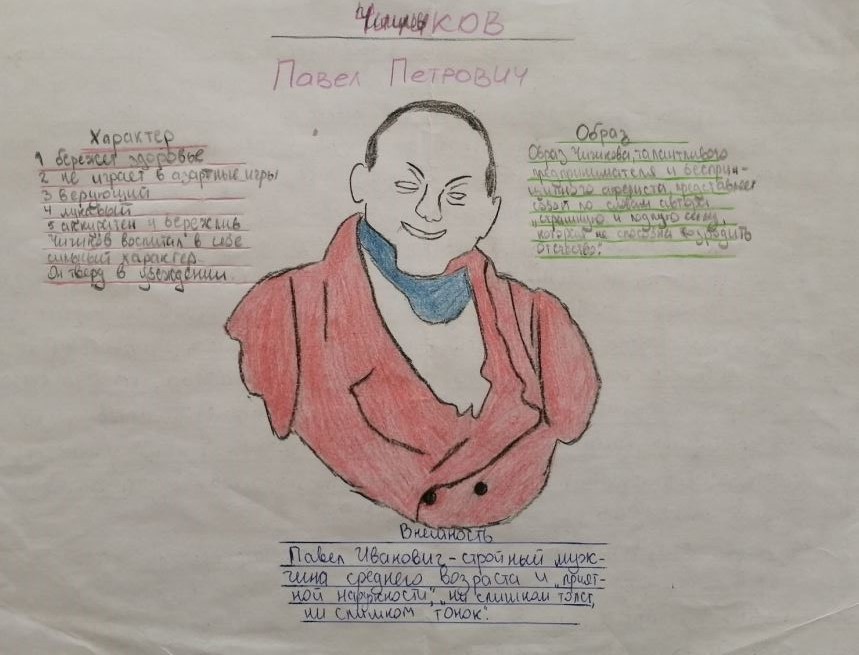 Чичиков
Павел Петрович
Характер
1 бережет здоровье
2 не играет в азартные игры
3 верующий
4 лукавый
5 аккуратен и бережлив
Чичиков воспитал в себе
сильный характер.
Он тверд в убеждении.
Образ
Образ Чичикова, талантливого
предпринимателя и бесприн-
ципного афериста, представляет
собой по словам автора
"страшную и подлую силу,
которая не способна возродить
отечество".
Внешность
Павел Иванович - стройный муж-
чина среднего возраста и "прият-
ной наружности", "ни слишком толст,
ни слишком тонок".